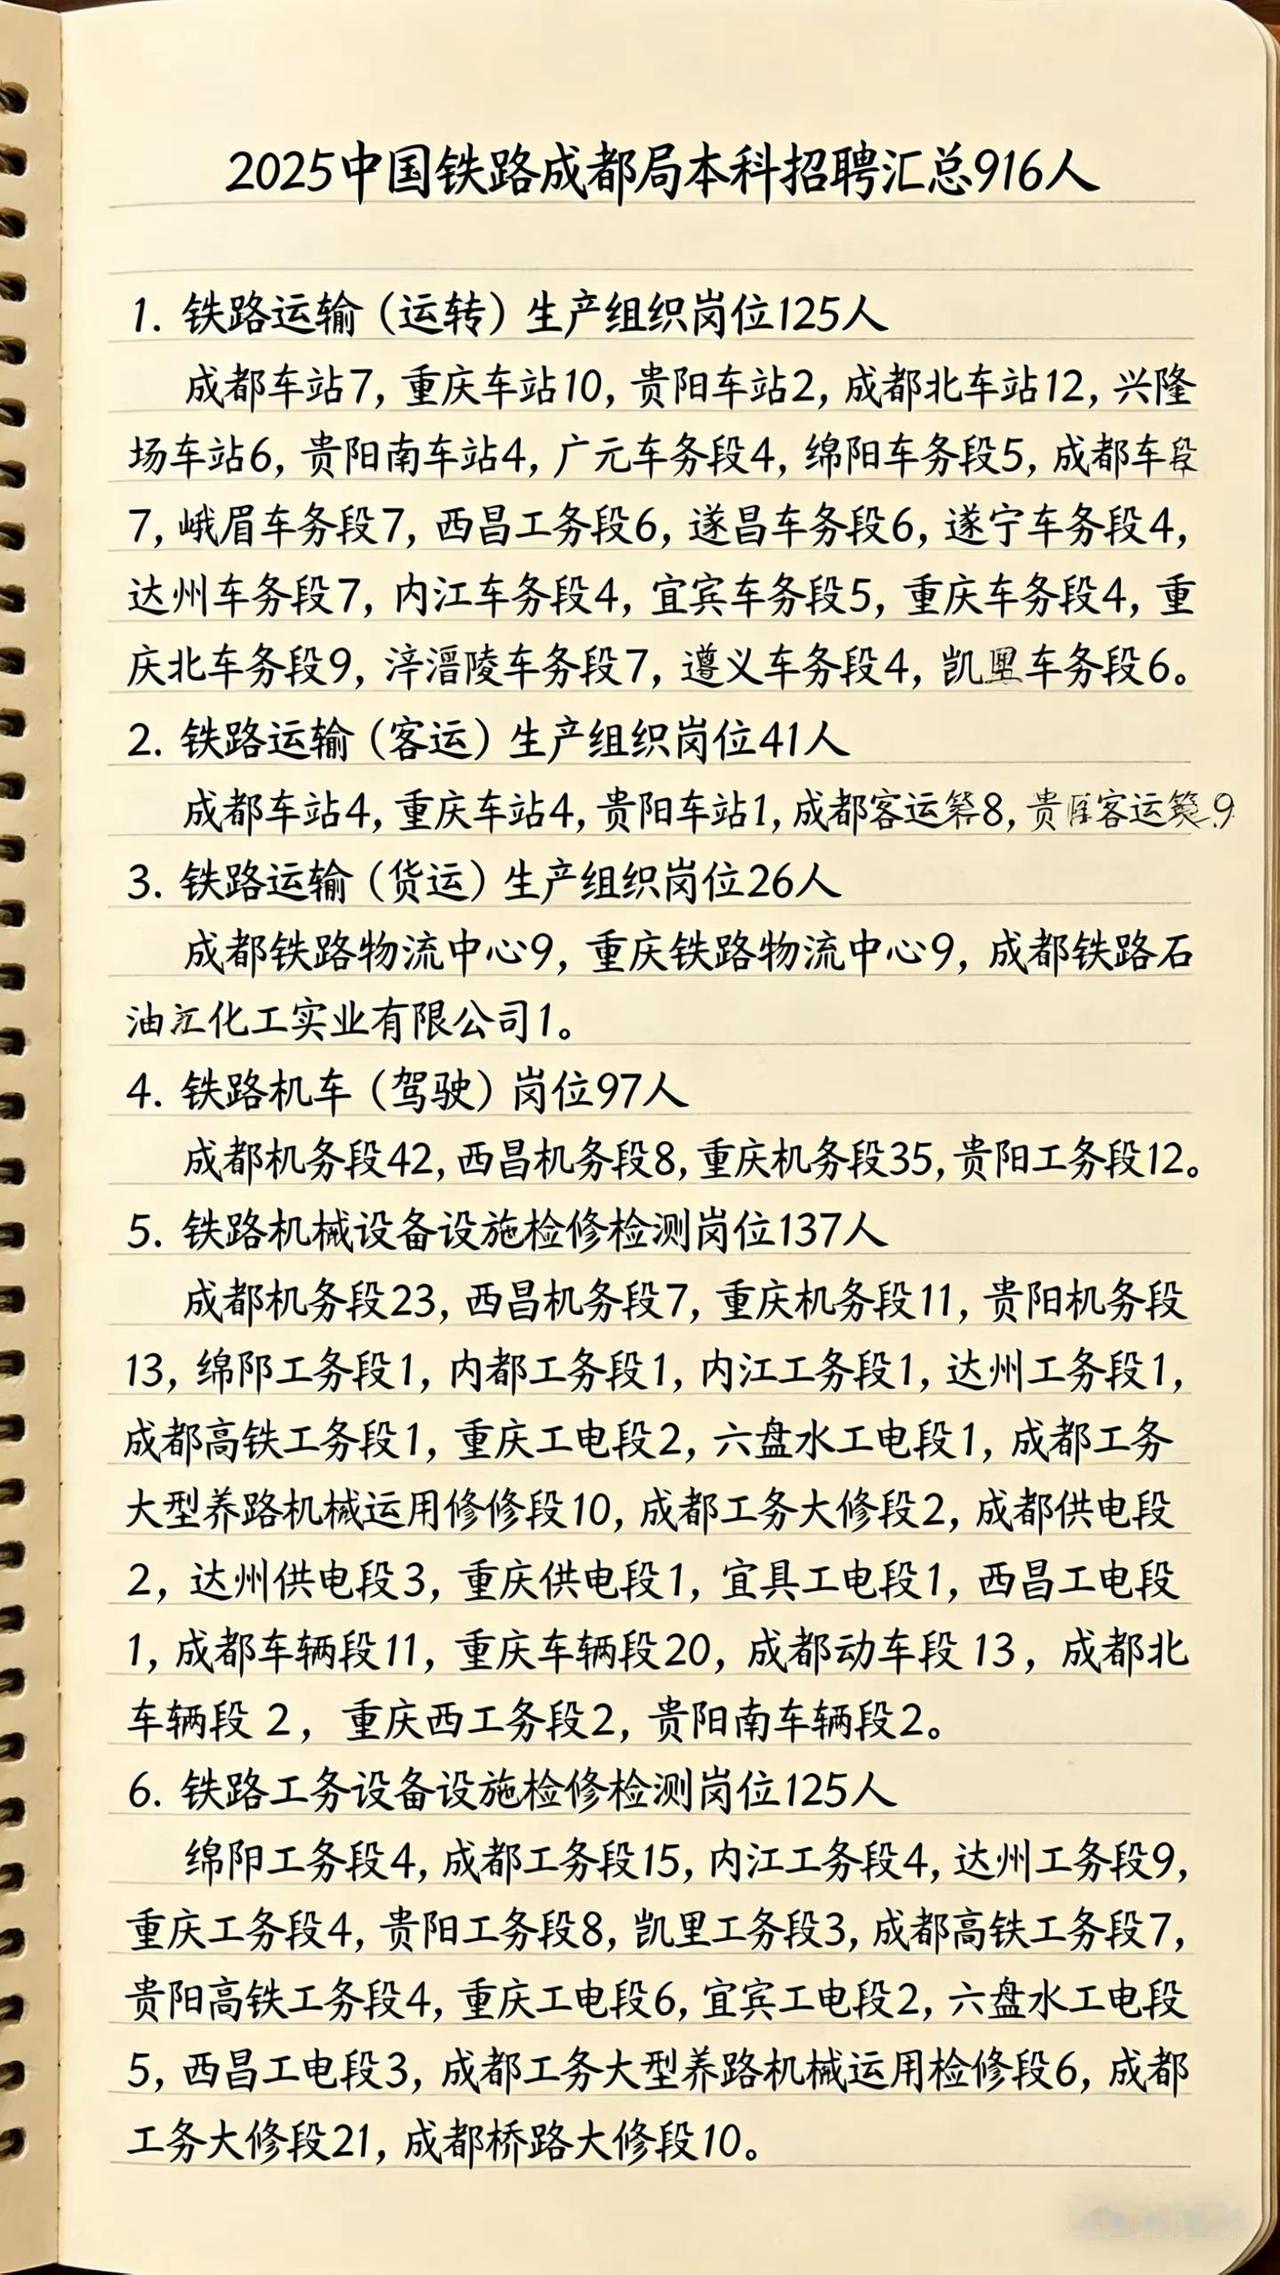 2025中国铁路成都局本科招聘汇总916人
1. 铁路运输（运转）生产组织岗位125人
成都车站7, 重庆车站10, 贵阳车站2, 成都北车站12, 兴隆
场车站6, 贵阳南车站4, 广元车务段4, 绵阳车务段5, 成都车段
7, 峨眉车务段7, 西昌工务段6, 遂昌车务段6, 遂宁车务段4,
达州车务段7, 内江车务段4, 宜宾车务段5, 重庆车务段4, 重
庆北车务段9, 陵车务段7, 遵义车务段4, 凯车务段6。
2. 铁路运输（客运）生产组织岗位41人
成都车站4, 重庆车站4, 贵阳车站1, 成都客运8, 贵客运9
3. 铁路运输（货运）生产组织岗位26人
成都铁路物流中心9, 重庆铁路物流中心9, 成都铁路石
油化工实业有限公司1。
4. 铁路机车（驾驶）岗位97人
成都机务段42, 西昌机务段8, 重庆机务段35, 贵阳工务段12。
5. 铁路机械设备设施检修检测岗位137人
成都机务段23, 西昌机务段7, 重庆机务段11, 贵阳机务段
13, 绵工务段1, 内都工务段1, 内江工务段1, 达州工务段1,
成都高铁工务段1, 重庆工电段2, 六盘水工电段1, 成都工务
大型养路机械运用修修段10, 成都工务大修段2, 成都供电段
2, 达州供电段3, 重庆供电段1, 宜具工电段1, 西昌工电段
1, 成都车辆段11, 重庆车辆段20, 成都动车段 13, 成都北
车辆段 2, 重庆西工务段2, 贵阳南车辆段2。
6. 铁路工务设备设施检修检测岗位125人
绵阳工务段4, 成都工务段15, 内江工务段4, 达州工务段9,
重庆工务段4, 贵阳工务段8, 凯里工务段3, 成都高铁工务段7,
贵阳高铁工务段4, 重庆工电段6, 宜宾工电段2, 六盘水工电段
5, 西昌工电段3, 成都工务大型养路机械运用检修段6, 成都
工务大修段21, 成都桥路大修段10。